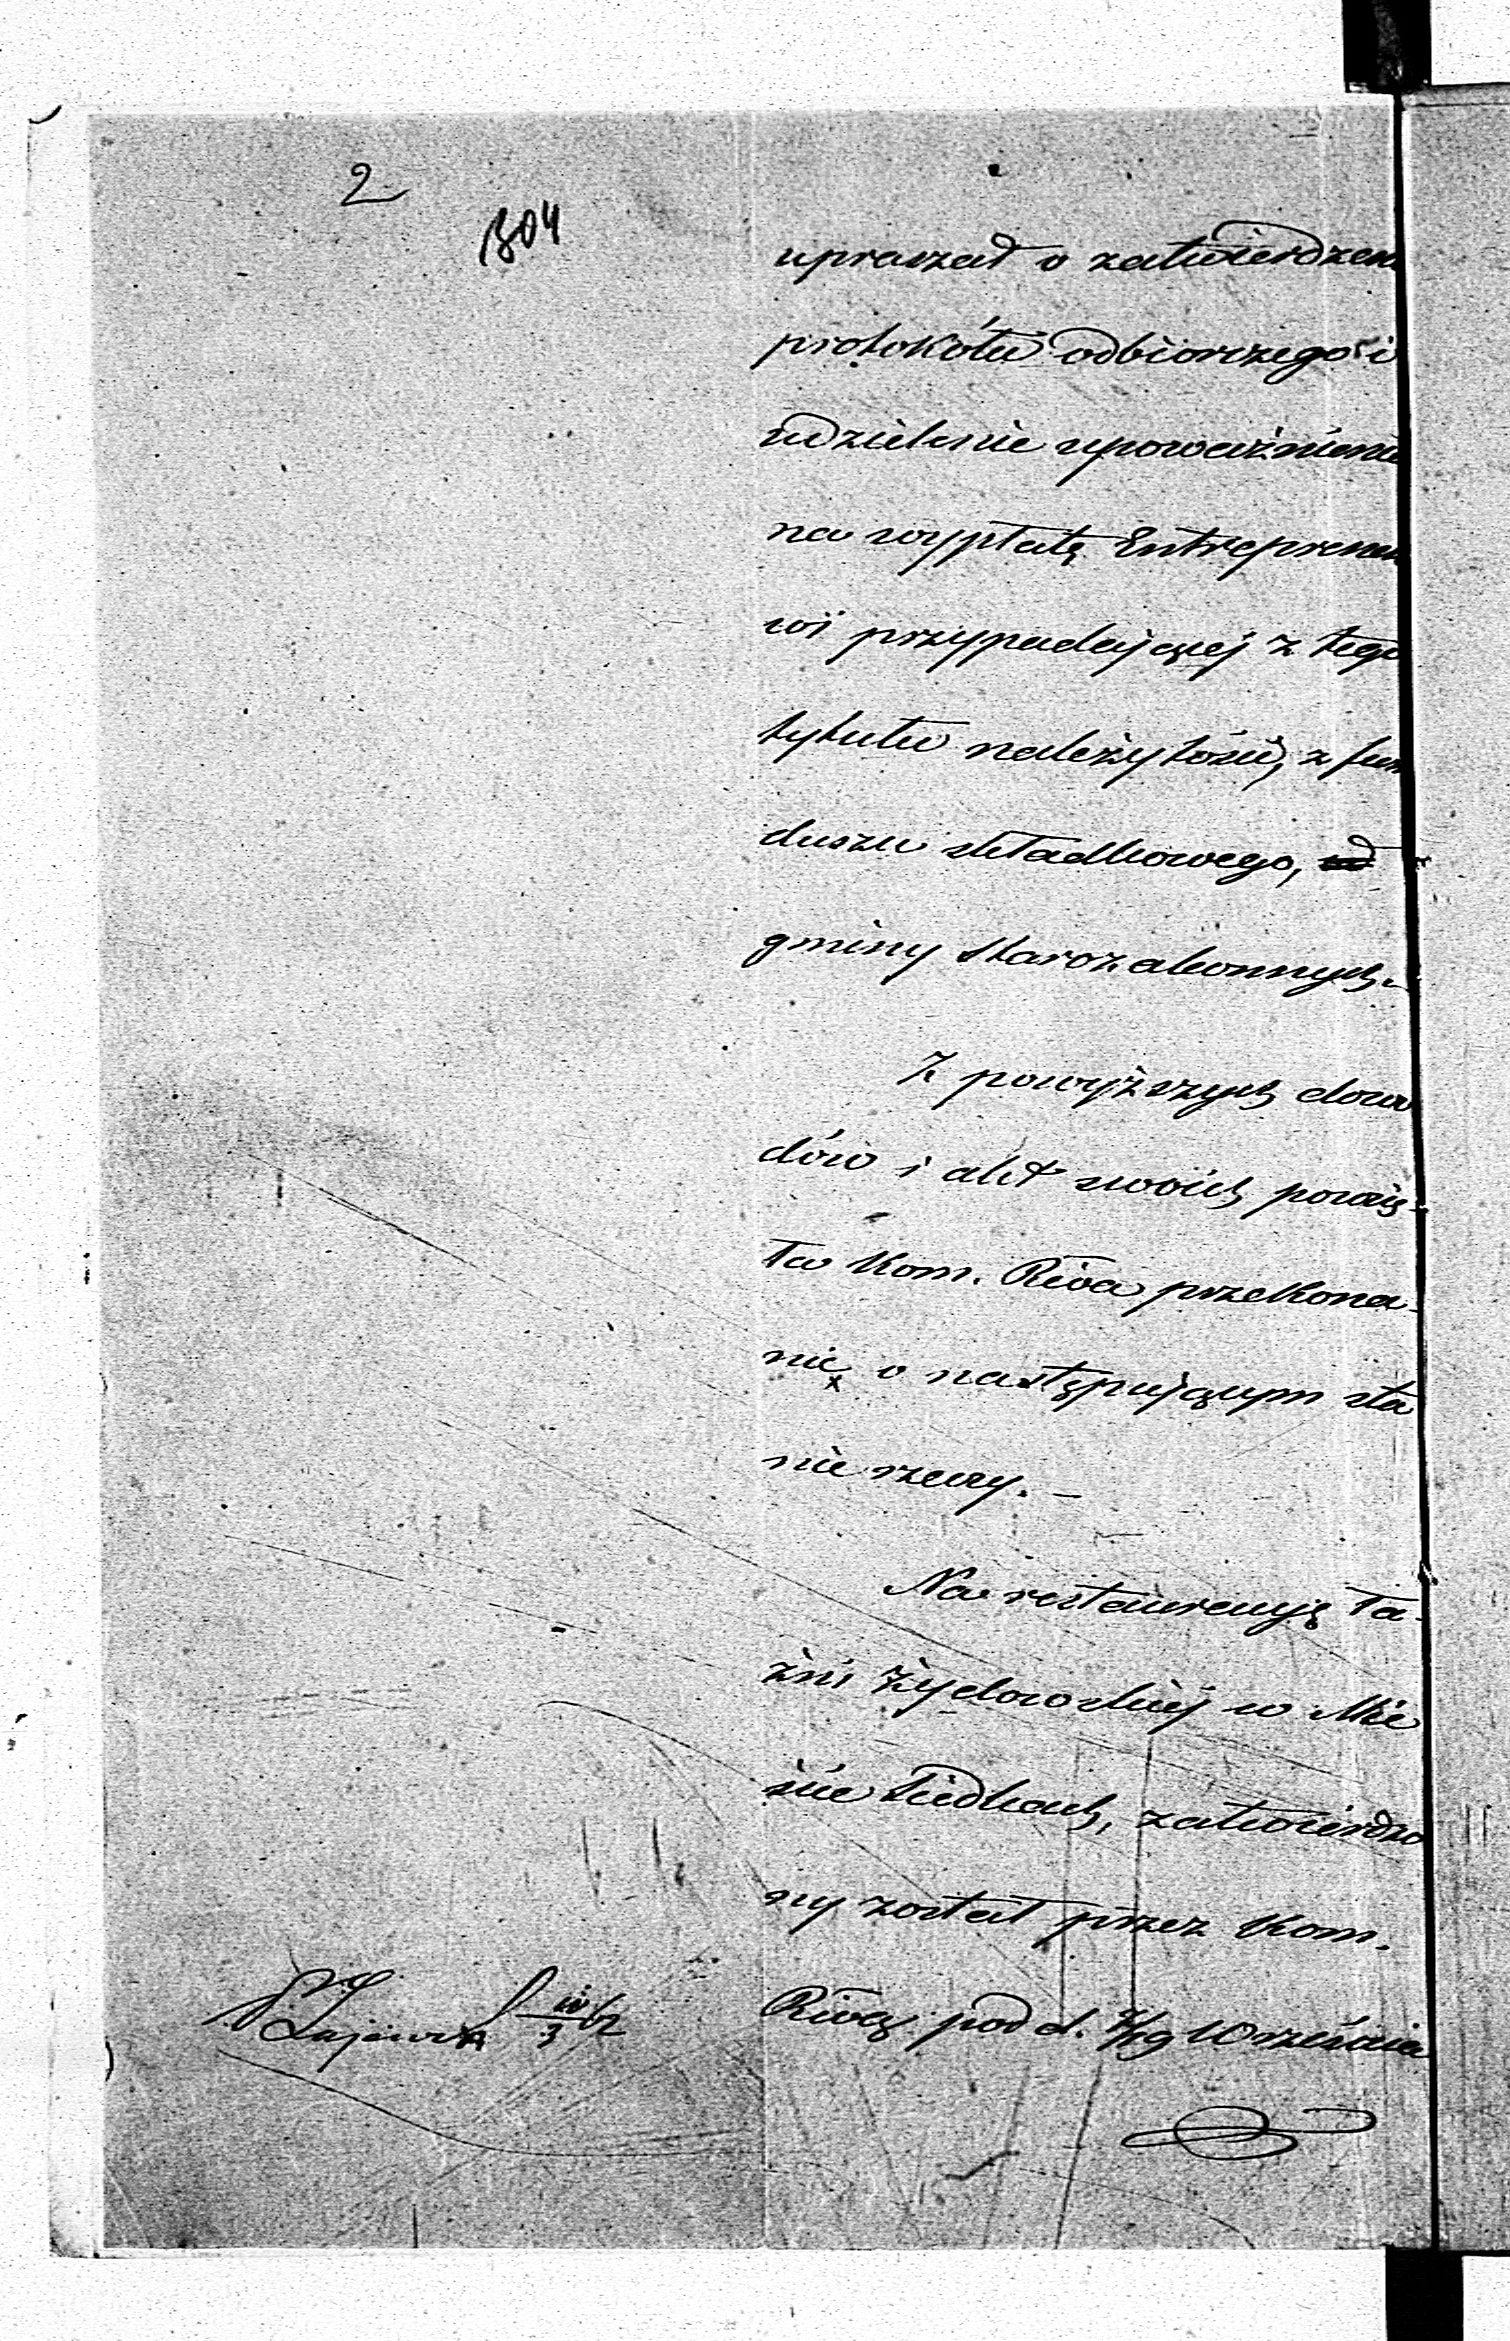 2
1304
upraszał o zatwierdzen
protokółu odbiorczego i
udzielenie upoważnieni
na wypłatę Entreprenen
wi przypadającej z tego
tytułu należytości, z fun
duszu składkowego,
gminy starozakonnych.–
Z powyższych dowo
dów i akt swoich powzię
ła Kom. Rwa przekona-
nie o następującym sta
nie rzeczy. –
Na restauracyę Ła-
źni Żydowskiej w Mie
ście Siedlcach, zatwierdzo
ny został przez Kom.
Rwą pod d. 7/19 Września